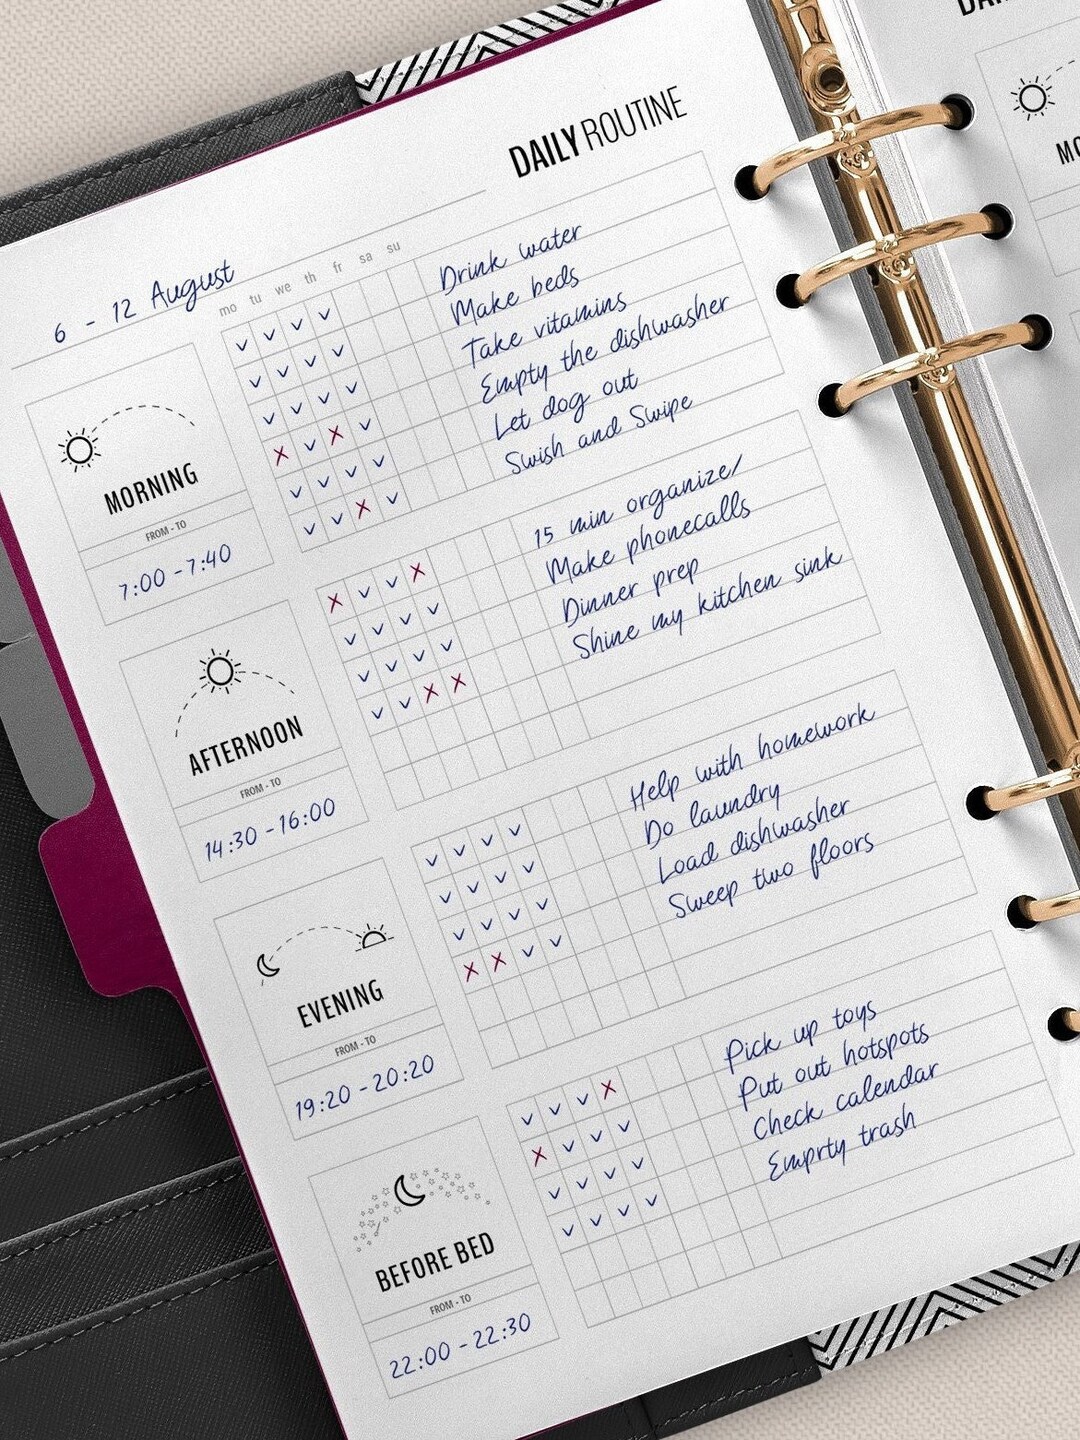 DAILY ROUTINE
6 - 12 August
mo tu we th fr sa su
MORNING
FROM - TO
7:00 - 7:40
v v v v Drink water
v v v v Make beds
v v v v Take vitamins
x v x v Empty the dishwasher
v v v v Let dog out
v v x v Swish and Swipe
AFTERNOON
FROM - TO
14:30 - 16:00
x v v x 15 min organize/
v v v v Make phonecalls
v v v v Dinner prep
v v x x Shine my kitchen sink
EVENING
FROM - TO
19:20 - 20:20
v v v v Help with homework
v v v v Do laundry
v v v v Load dishwasher
x x v v Sweep two floors
BEFORE BED
FROM - TO
22:00 - 22:30
v v v x Pick up toys
x v v v Put out hotspots
v v v v Check calendar
v v v v Emprty trash